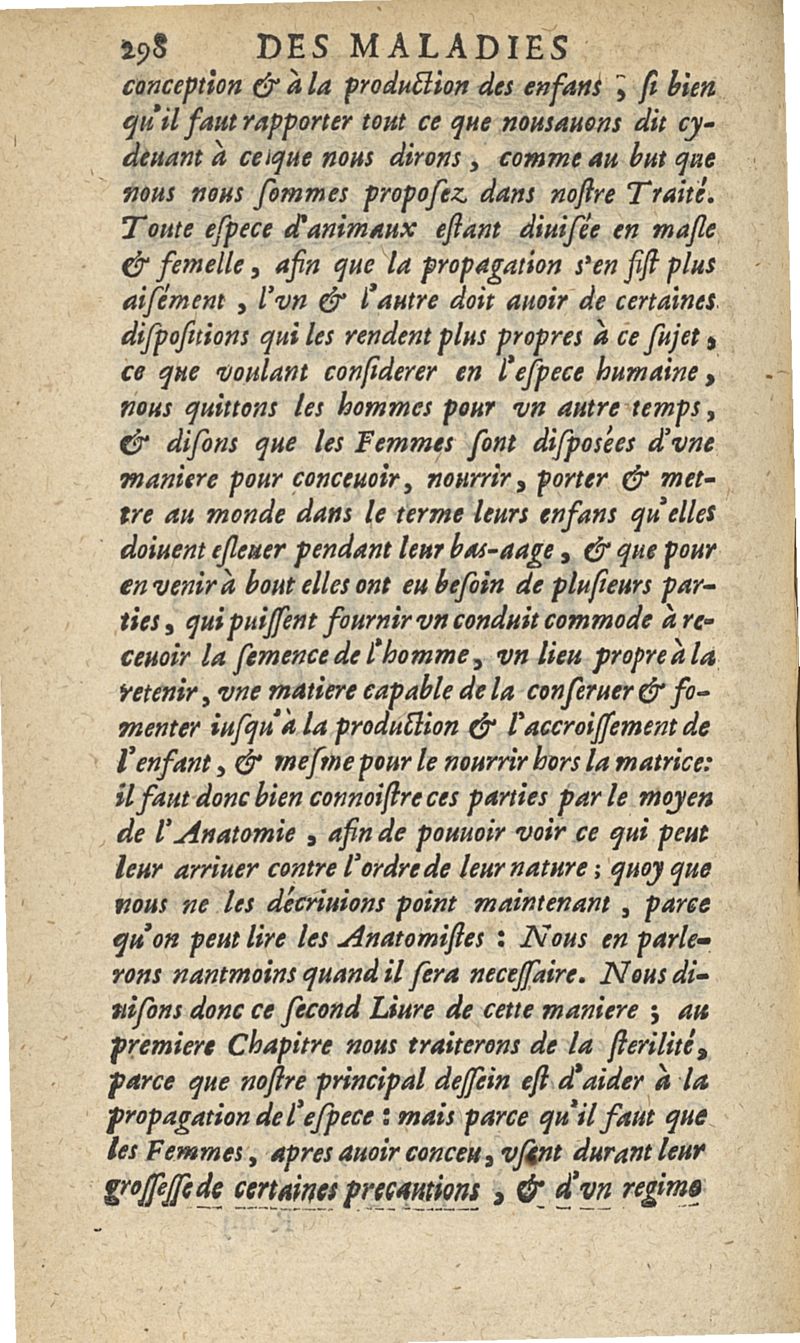 298 DES MALADIES
conception & à la production des enfans ; ſi bien
qu'il faut rapporter tout ce que nousauons dit cy-
deuant à ce que nous dirons, comme au but que
nous nous ſommes propoſez dans noſtre Traité.
Toute eſpece d'animaux eſtant diuiſée en maſle
& femelle, afin que la propagation s'en fiſt plus
aiſément, l'vn & l'autre doit auoir de certaines
diſpoſitions qui les rendent plus propres à ce ſujet,
ce que voulant conſiderer en l'eſpece humaine,
nous quittons les hommes pour vn autre temps,
& diſons que les Femmes ſont diſposées d'vne
maniere pour conceuoir, nourrir, porter & met-
tre au monde dans le terme leurs enfans qu'elles
doiuent eſleuer pendant leur bas-aage, & que pour
en venir à bout elles ont eu beſoin de pluſieurs par-
ties, qui puiſſent fournir vn conduit commode à re-
ceuoir la ſemence de l'homme, vn lieu propre à la
retenir, vne matiere capable de la conſeruer & fo-
menter iuſqu'à la production & l'accroiſſement de
l'enfant, & meſme pour le nourrir hors la matrice:
il faut donc bien connoiſtre ces parties par le moyen
de l'Anatomie, afin de pouuoir voir ce qui peut
leur arriuer contre l'ordre de leur nature ; quoy que
nous ne les décriuions point maintenant, parce
qu'on peut lire les Anatomiſtes : Nous en parle-
rons nantmoins quand il ſera neceſſaire. Nous di-
uiſons donc ce ſecond Liure de cette maniere ; au
premiere Chapitre nous traiterons de la ſterilité,
parce que noſtre principal deſſein eſt d'aider à la
propagation de l'eſpece : mais parce qu'il faut que
les Femmes, apres auoir conceu, vſent durant leur
groſſeſſe de certaines precautions, & d'vn regime